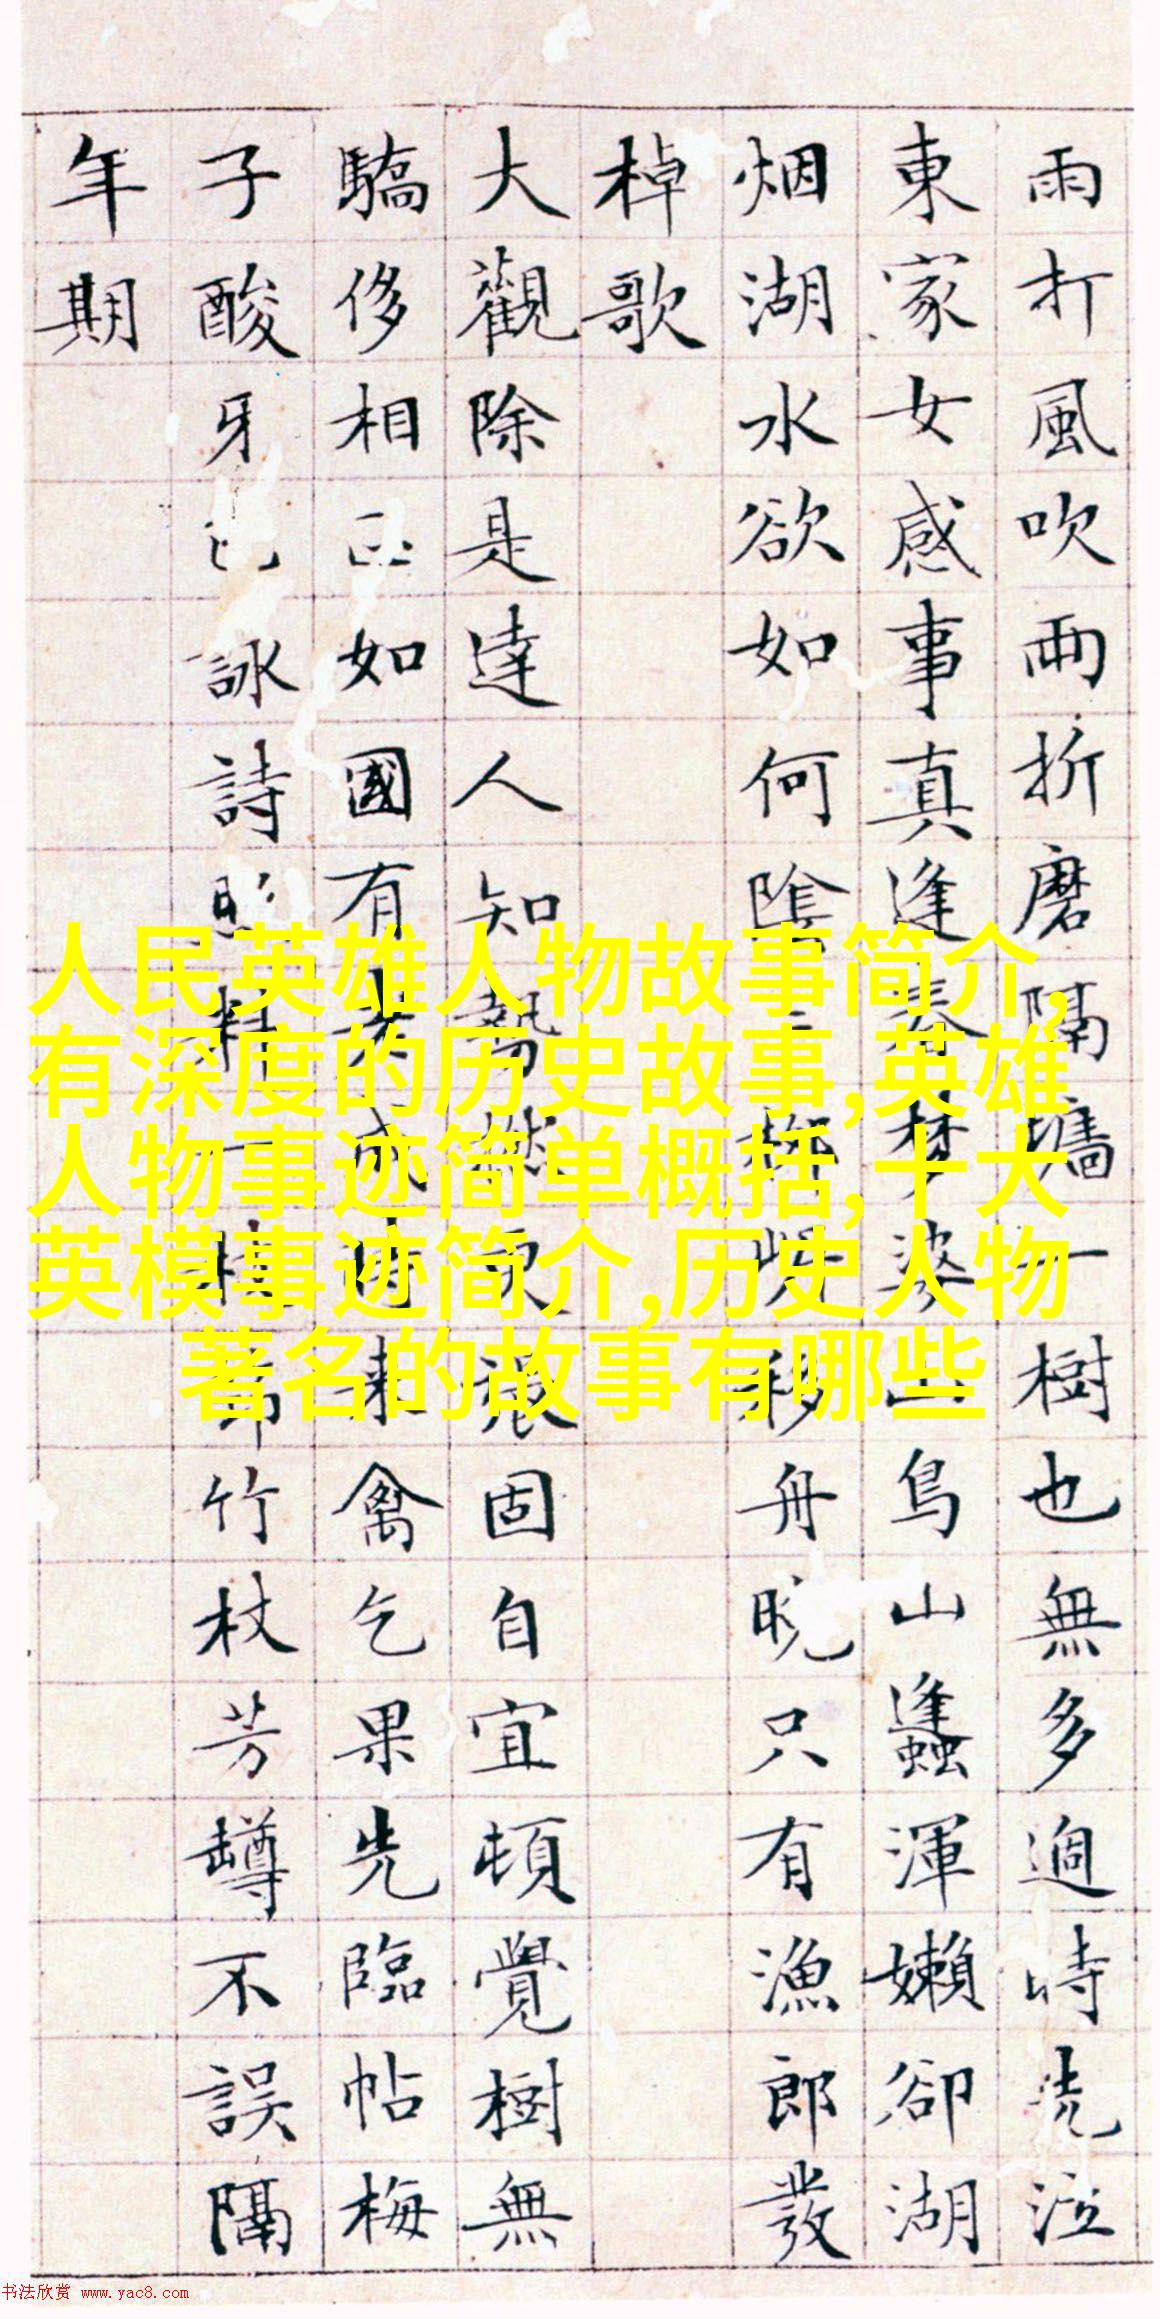 雨打風吹雨折磨隔墻一樹也無多過時洗泣
東家女感事真逢春夢婆山鳥山蠭渾嬾卻湖
烟湖水欲如何陰移舟晚只有漁郎發
棹歌
大觀除是達人知勢固自宜頓覺樹無
驕侈相如國有老成待來禽乞果先臨帖梅
子酸牙詠詩料一時節竹杖芳罇不誤隔
年期
人民英雄人物故事简介,
有深度的历史故事,英雄
人物事迹简单概括,十大
英模事迹简介,历史人物
著名的故事有哪些
书法欣赏 www.yac8.com